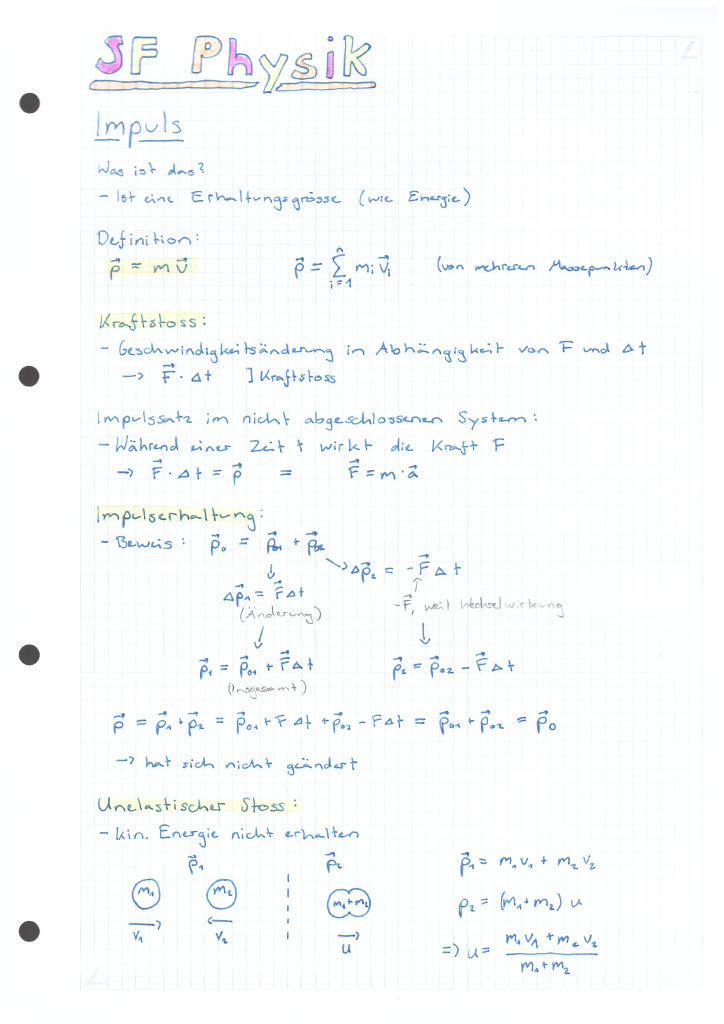 SF Physik
Impuls
Was ist das?
- Ist eine Erhaltungsgrösse (wie Energie)
Definition:
p⃗ = m v⃗    p⃗ = ∑ⁿᵢ₌₁ mᵢ v⃗ᵢ    (von mehreren Massepunkten)
Kraftstoss:
- Geschwindigkeitsänderung in Abhängigkeit von F und Δt
→ F⃗ · Δt    ] Kraftstoss
Impulssatz im nicht abgeschlossenen System:
- Während einer Zeit t wirkt die Kraft F
→ F⃗ · Δt = p⃗    =    F⃗ = m · a⃗
Impulserhaltung:
- Beweis: p⃗₀ = p⃗₀₁ + p⃗₀₂
↓    ↘ Δp⃗₂ = - F⃗ Δt
Δp⃗₁ = F⃗ Δt
(Änderung)    -F⃗, weil Wechselwirkung
↓    ↓
p⃗₁ = p⃗₀₁ + F⃗ Δt    p⃗₂ = p⃗₀₂ - F⃗ Δt
(Insgesamt)
p⃗ = p⃗₁ + p⃗₂ = p⃗₀₁ + F Δt + p⃗₀₂ - F Δt = p⃗₀₁ + p⃗₀₂ = p⃗₀
→ hat sich nicht geändert
Unelastischer Stoss:
- kin. Energie nicht erhalten
p⃗₁    p⃗₂    p⃗₁ = m₁ v₁ + m₂ v₂
m₁    m₂    m₁+m₂    p₂ = (m₁ + m₂) u
v₁    v₂    u    ⇒ u = (m₁ v₁ + m₂ v₂) / (m₁ + m₂)